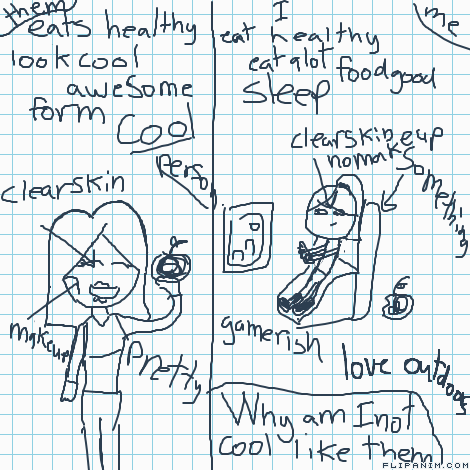 them
eats healthy
look cool
awesome
form
cool
Person
clearskin
makeup
Pretty
me
I
eat healthy
eat alot food good
Sleep
clearskin
no makeup
Something
gamerish
love outdoors
Why am I not
cool like them
FLIPANIM.COM